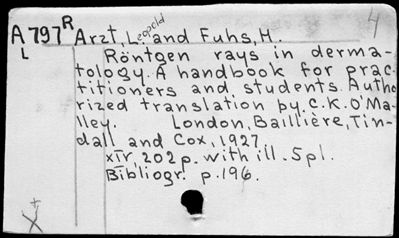 4
A797R Arzt, Leopold and Fuhs, H.
L Röntgen rays in derma-
tology. A handbook for prac-
titioners and students. Autho
rized translation by C.K. O'Ma-
lley. London, Baillière, Tin-
dall and Cox, 1927
XIV, 202 p. with ill. 5 pl.
Bibliogr. p. 196.
+
X